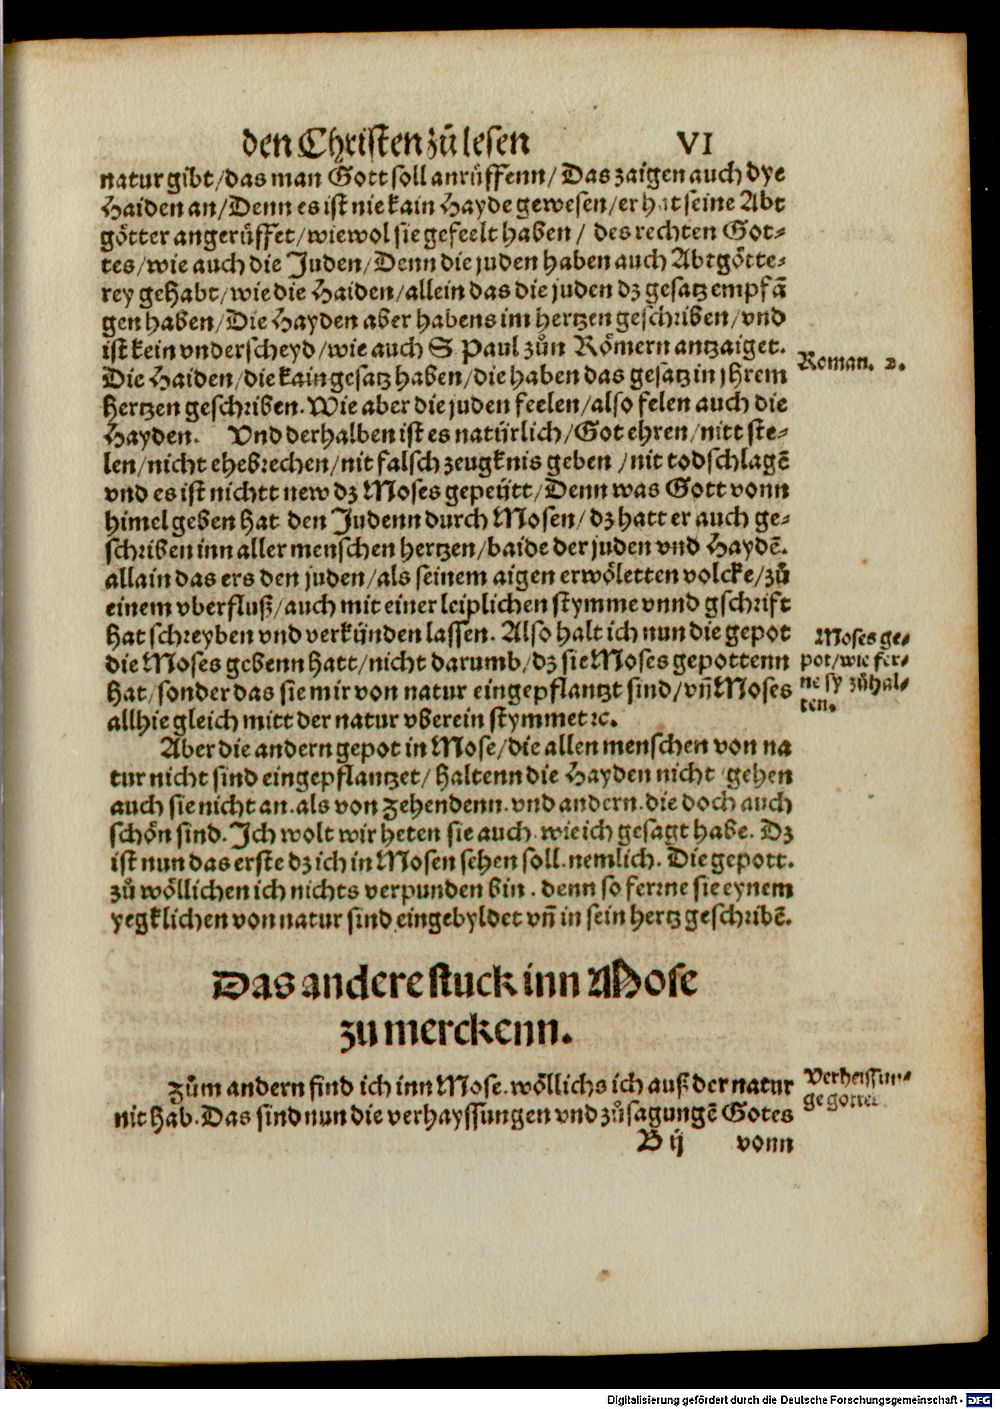 den Christen zů lesen VI
natur gibt/das man Gott soll anrüffenn/ Das zaigen auch dye
Haiden an/Denn es ist nie kain Hayde gewesen/er hat seine Abt
götter angerüffet/wiewol sie gefeelt haben/ des rechten Got-
tes/wie auch die Juden/Denn die juden haben auch Abtgötte-
rey gehabt/wie die Haiden/allein das die juden dz gesatz empfā
gen haben/Die Hayden aber habens im hertzen geschriben/vnd
ist kein vnderscheyd/wie auch S Paul zůn Römern antzaiget.
Roman. 2.
Die Haiden/die kain gesatz haben/die haben das gesatz in jhrem
hertzen geschriben. Wie aber die juden feelen/also felen auch die
Hayden. Vnd derhalben ist es natürlich/Got ehren/nitt ste-
len/nicht ehebrechen/nit falsch zeugknis geben /nit todschlagē
vnd es ist nichtt new dz Moses gepeütt/Denn was Gott vonn
himel geben hat den Judenn durch Mosen/dz hatt er auch ge-
schriben inn aller menschen hertzen/baide der juden vnd Haydē.
allain das ers den juden/als seinem aigen erwöletten volcke/zů
einem vberfluß/auch mit einer leiplichen stymme vnnd gschrift
hat schreyben vnd verkünden lassen. Also halt ich nun die gepot
die Moses gebenn hatt/nicht darumb/dz sie Moses gepottenn
hat/sonder das sie mir von natur eingepflantzt sind/vñ Moses
allhie gleich mitt der natur vberein stymmet ꝛc.
Moses ge-
pot/wie fer-
ne sy zůhal-
ten.
Aber die andern gepot in Mose/die allen menschen von na
tur nicht sind eingepflantzet/ haltenn die Hayden nicht gehen
auch sie nicht an. als von zehendenn. vnd andern. die doch auch
schön sind. Ich wolt wir heten sie auch. wie ich gesagt habe. Dz
ist nun das erste dz ich in Mosen sehen soll. nemlich. Die gepott.
zů wöllichen ich nichts verpunden bin. denn so ferrne sie eynem
yegklichen von natur sind eingebyldet vñ in sein hertz geschribē.
Das andere stuck inn Mose
zu merckenn.
Zům andern find ich inn Mose. wöllichs ich auß der natur
nit hab. Das sind nun die verhayssungen vnd zůsagungē Gotes
Verheissun-
ge gottes
B ij vonn
Digitalisierung gefördert durch die Deutsche Forschungsgemeinschaft - DFG